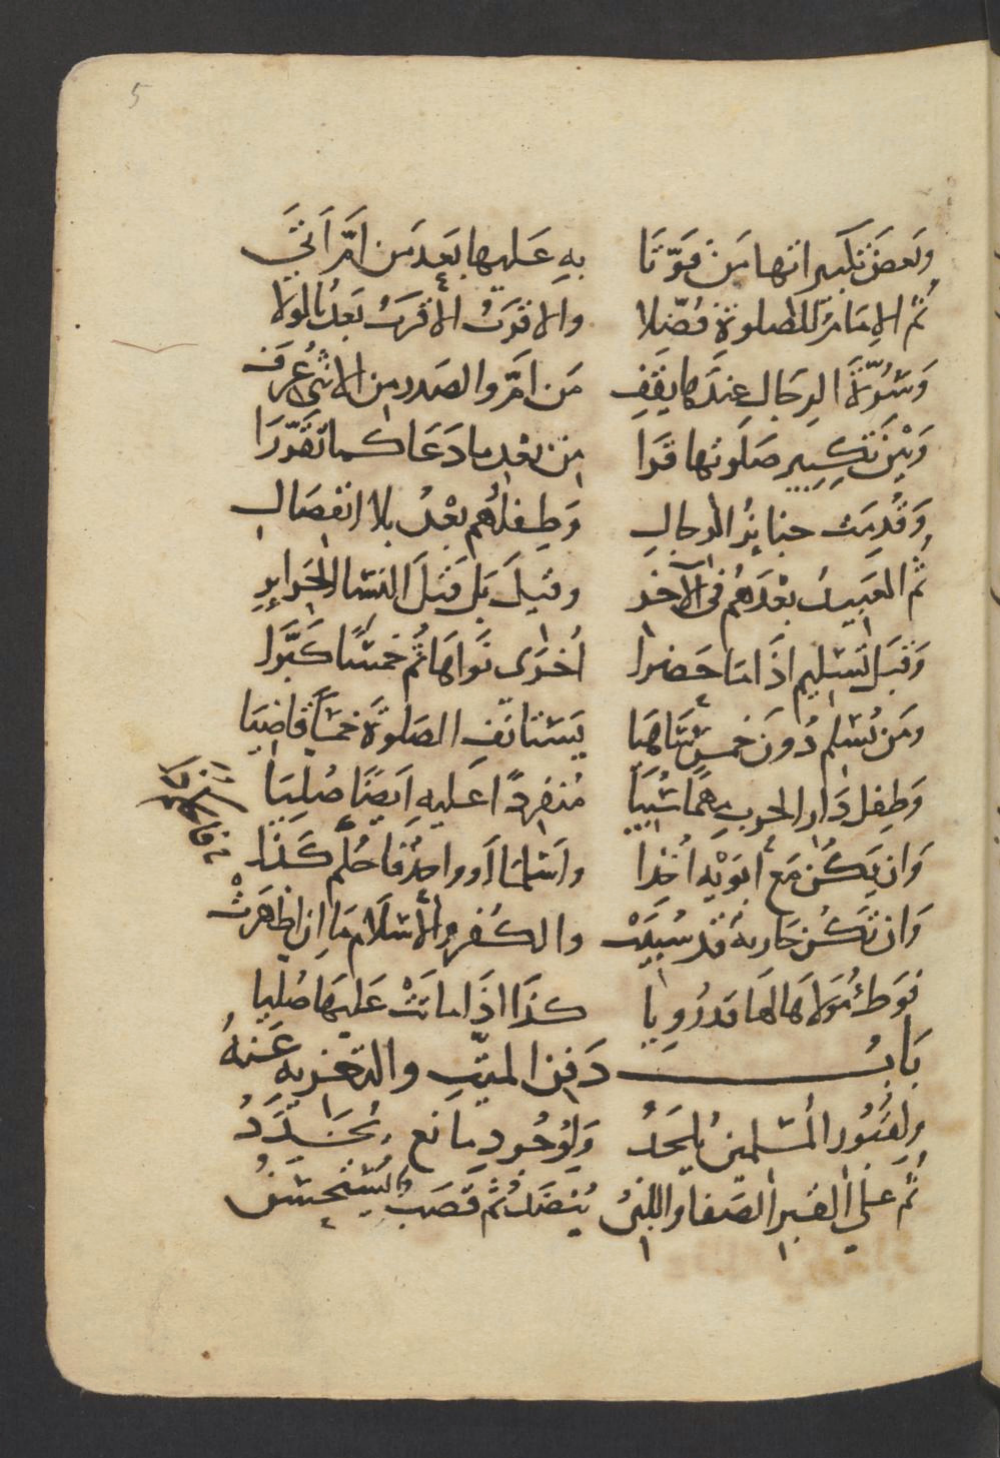 5
وَبَعضَ تَكبيراتها مَن فَوَّتَا به عَليها بَعد مَن اَمَّ اَتَى
ثُم الاِمَامُ للصلوة فُضّلا والاقرَبُ الاقرَبُ بَعدُ بالولا
وَسُرَّةَ الرجَال عندَها يَقِفِ مَن اَمَّ والصَدر من الانثى عُرِف
وَبَيْن تَكبير صَلَوتها قَرَا من بَعْد ما دَعَا كما تقَرَّرَا
وَقُدِمَت جنايزُ الرجال وَطِفلُهُم بعْدُ بلا انفصَال
ثُم العَبيدُ بعْدَهُم فى الآخر وقيلَ بَل قَبلَ النسَا الحَرايرِ
وَقَبل تَسليم اذَا ما حَضرا اُخرَى نَوَاهَا ثُم خمسًا كَبَّرا
وَمَن يُسَلم دُونَ خمسٍ سَاهيَا يَستانف الصَلوةَ خمسًا قاضيَا
وَطِفل دَار الحرب مهمَا سُبيَا مُنفردًا عَليهِ اَيضًا صُليَا
وَان يَكُن مَع اَبوَيْه اُخذا واَسلمَا اَو واحدٌ فاحكُم كَذَا
وَان تَكُن جَارية قَد سُبيَتْ والكُفر والاسلَام مَا ان اظهَرَتْ
فوَطئُ مَولاهَا لهَا قَد رُويَا كذَا اذَا ماتَتْ عَليهَا صُليا
بَابُ دَفن الميّتِ والتعزيه عَنهُ
ولقبُور المُسلمين يُلحَدُ وَلِوُجُود مانع يُخَدَّدُ
ثُم عَلى القبر الصَفا واللبنُ يُنضَدُ ثُم قَصَب يُستَحسَنُ